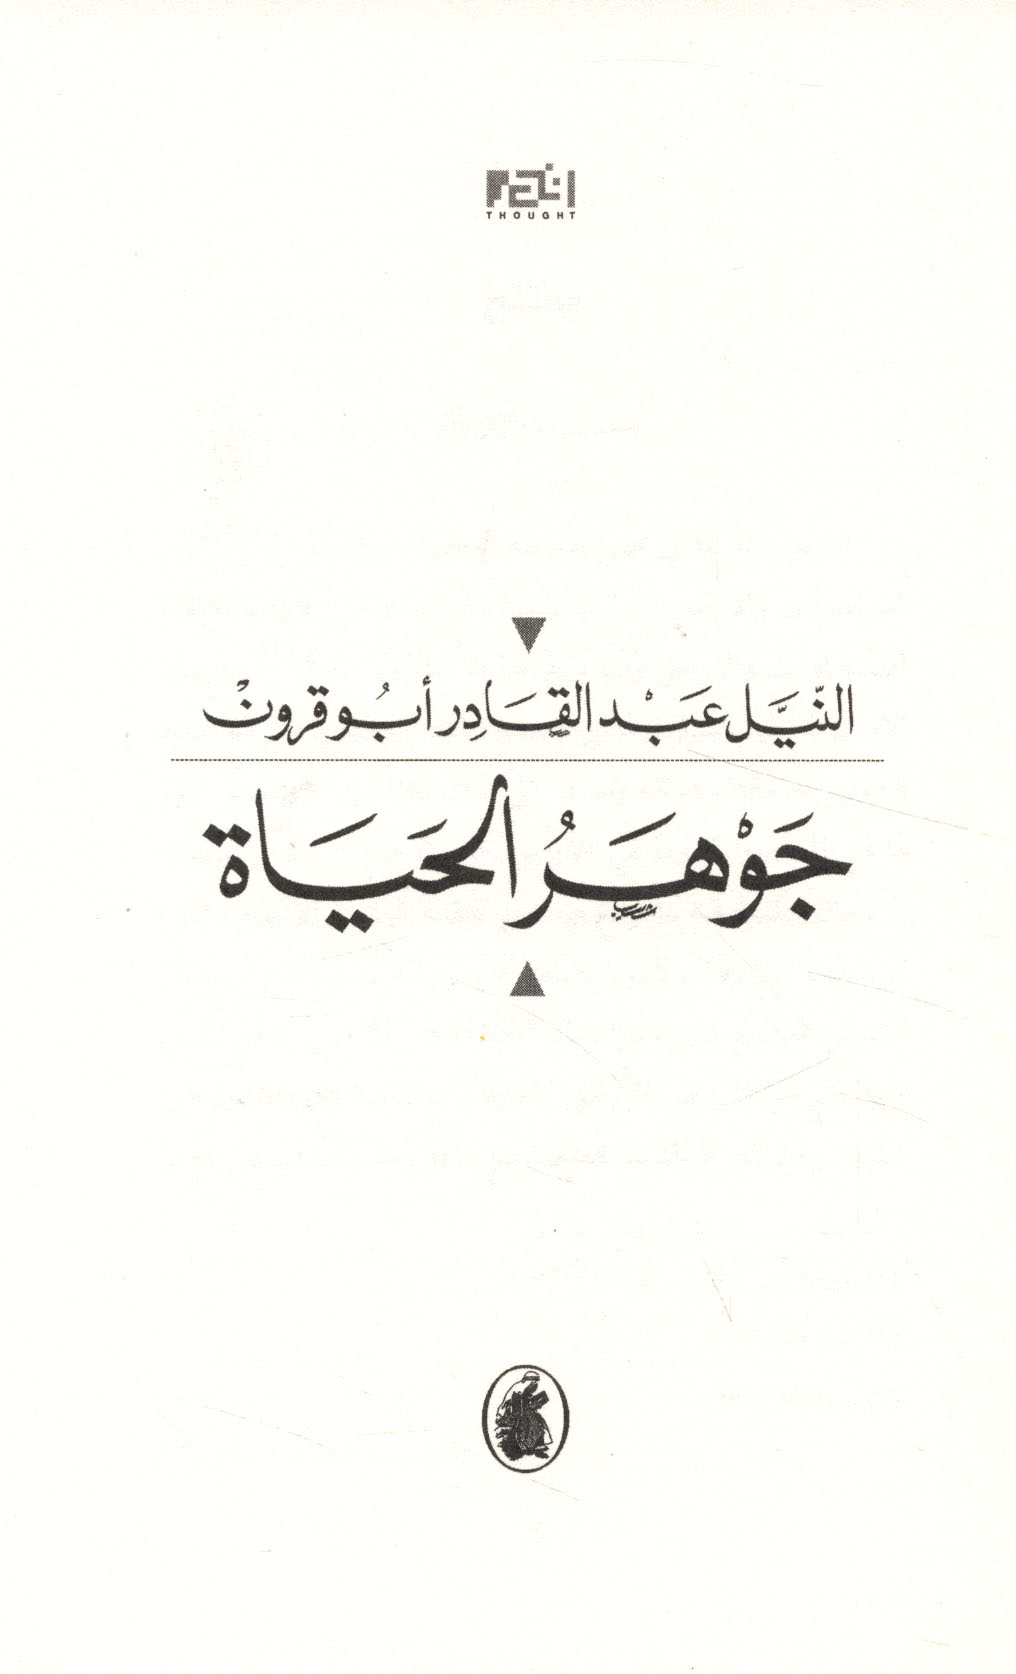 THOUGHT
النَّيَّل عَبْد القَادِر أبُو قرونْ
جَوْهَرُ الحَيَاة